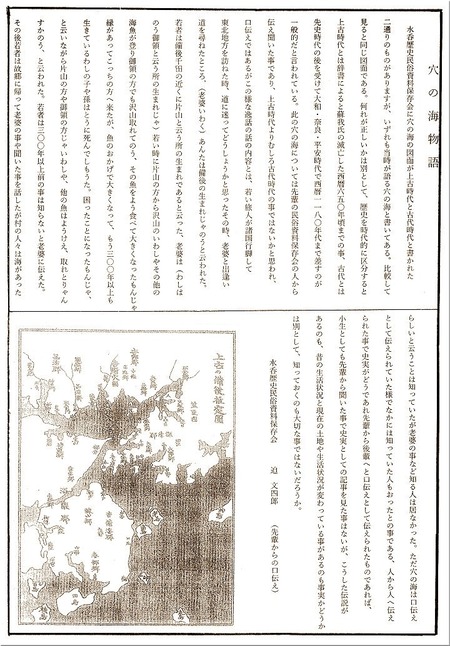 穴の海物語
水呑歴史民俗資料保存会に穴の海の図面が上古時代と古代時代と書かれた
二通りのものがありますが、いずれも当時が語る穴の海と書いてある。比較して
見ると同じ図面である。何れが正しいかは別として、歴史を時代的に区分すると
上古時代とは辞書によると蘇我氏の滅亡した西暦六五〇年頃までの事、古代とは
先史時代の後を受けて大和・奈良・平安時代で西暦一一八〇年代まで差すのが
一般的だと言われている。此の穴の海については先輩の民俗資料保存会の人から
伝え聞いた事であり、上古時代よりむしろ古代時代の事ではないかと思われ、
口伝えではあるがこの様な逸話の話の内容とは、若い旅人が諸国行脚して
東北地方を訪ねた時、道に迷ってどうしょうかと思ったその時、老婆と出逢い
道を尋ねたところ、（老婆いわく）あんたは備後の生まれじゃのうと云われた。
若者は備後千田の近くに片山と云う所の生まれであると云った、老婆は（わしは
のう御領と云う所の生まれじゃ）若い時に片山の方から沢山のいわしやその他の
海魚が登り御領の方でも沢山取れてのう、その魚をよう食べて大きくなったもんじゃ
縁があってこっちの方へ来たが、魚のおかげで大きくなって、もう三〇〇年以上も
生きているわしの子や孫はとうに死んでしもうた。困ったことになったもんじゃ、
と云いながら片山の方や御領の方じゃいわしや、他の魚はようけえ、取れとりゃん
すかのう、と云われた。若者は三〇〇年以上前の事は知らないと老婆に伝えた。
その後若者は故郷に帰って老婆の事や聞いた事を話したが村の人々は海があった
らしいと云うことは知っていたが老婆の事など知る人は居なかった。ただ穴の海は口伝え
として伝えられていた様でなかには知っていた人もおったとの事である、人から人へ伝え
られた事で史実がどうであれ先輩から後輩へと口伝えとして伝えられたものであれば、
小生としても先輩から聞いた事で史実としての記事を見た事はないが、こうした伝説が
あるのも、昔の生活状況と現在の土地や生活状況が変わっている事があるのも事実かどうか
は別として、知っておくのも大切な事ではないだろうか。
水呑歴史民俗資料保存会　迫　文四郎　（先輩からの口伝え）
上古の備後國